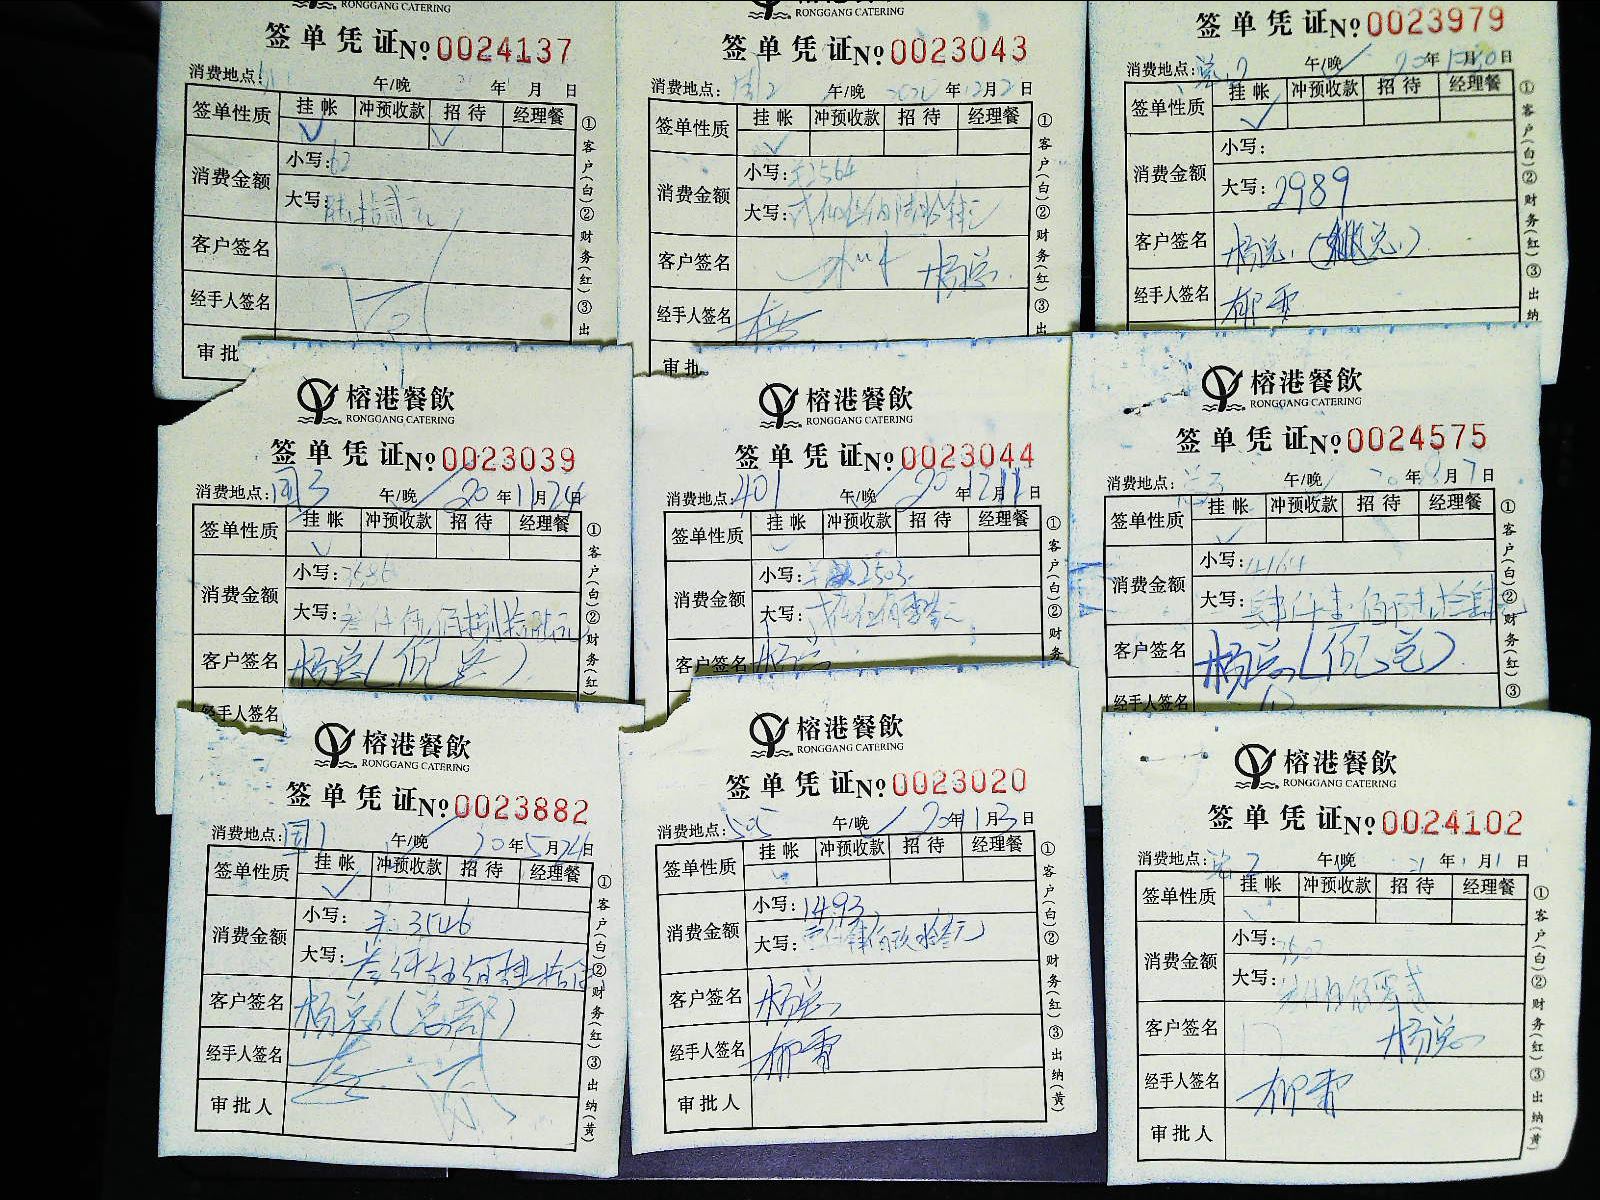 RONGGANG CATERING
签单凭证№0024137
消费地点:
午/晚 年 月 日
签单性质 挂帐 冲预收款 招待 经理餐
消费金额
小写:62
大写:陆拾贰元
客户签名
经手人签名
审批
①客户(白)②财务(红)③出
RONGGANG CATERING
签单凭证№0023043
消费地点:周2 午/晚 2020年12月2日
签单性质 挂帐 冲预收款 招待 经理餐
消费金额
小写:2564
大写:贰仟伍佰陆拾肆元
客户签名 杨总
经手人签名
审批
①客户(白)②财务(红)③出
签单凭证№0023979
消费地点: 午/晚 20年 月 日
签单性质 挂帐 冲预收款 招待 经理餐
消费金额
小写:
大写:2989
客户签名 杨总
经手人签名 柳雪
①客户(白)②财务(红)③出纳
榕港餐飲
RONGGANG CATERING
签单凭证№0023039
消费地点:周3 午/晚 20年11月24日
签单性质 挂帐 冲预收款 招待 经理餐
消费金额
小写:3586
大写:叁仟伍佰捌拾陆元
客户签名 杨总(倪总)
经手人签名
①客户(白)②财务(红)
榕港餐飲
RONGGANG CATERING
签单凭证№0023044
消费地点:401 午/晚 20年12月11日
签单性质 挂帐 冲预收款 招待 经理餐
消费金额
小写:2503
大写:贰仟伍佰零叁元
客户签名 杨总
①客户(白)②财务
榕港餐飲
RONGGANG CATERING
签单凭证№0024575
消费地点:总3 午/晚 20年 月7日
签单性质 挂帐 冲预收款 招待 经理餐
消费金额
小写:4164
大写:肆仟壹佰陆拾肆元
客户签名 杨总(倪总)
经手人签名
①客户(白)②财务(红)③
榕港餐飲
RONGGANG CATERING
签单凭证№0023882
消费地点:周1 午/晚 20年5月24日
签单性质 挂帐 冲预收款 招待 经理餐
消费金额
小写:3546
大写:叁仟伍佰肆拾陆
客户签名 杨总(总部)
经手人签名
审批人
①客户(白)②财务(红)③出纳(黄)
榕港餐飲
RONGGANG CATERING
签单凭证№0023020
消费地点:505 午/晚 20年11月3日
签单性质 挂帐 冲预收款 招待 经理餐
消费金额
小写:1493
大写:壹仟肆佰玖拾叁元
客户签名 杨总
经手人签名 柳雪
审批人
①客户(白)②财务(红)③出纳(黄)
榕港餐飲
RONGGANG CATERING
签单凭证№0024102
消费地点:总2 午/晚 21年1月1日
签单性质 挂帐 冲预收款 招待 经理餐
消费金额
小写:
大写:
客户签名 杨总
经手人签名 柳雪
审批人
①客户(白)②财务(红)③出纳(黄)